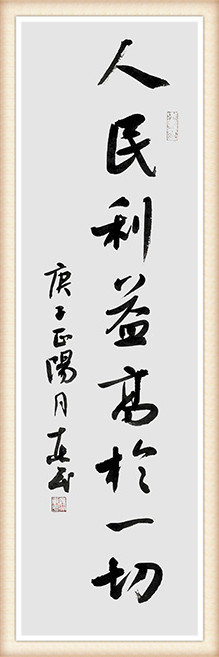 人民利益高於一切
庚子正陽月